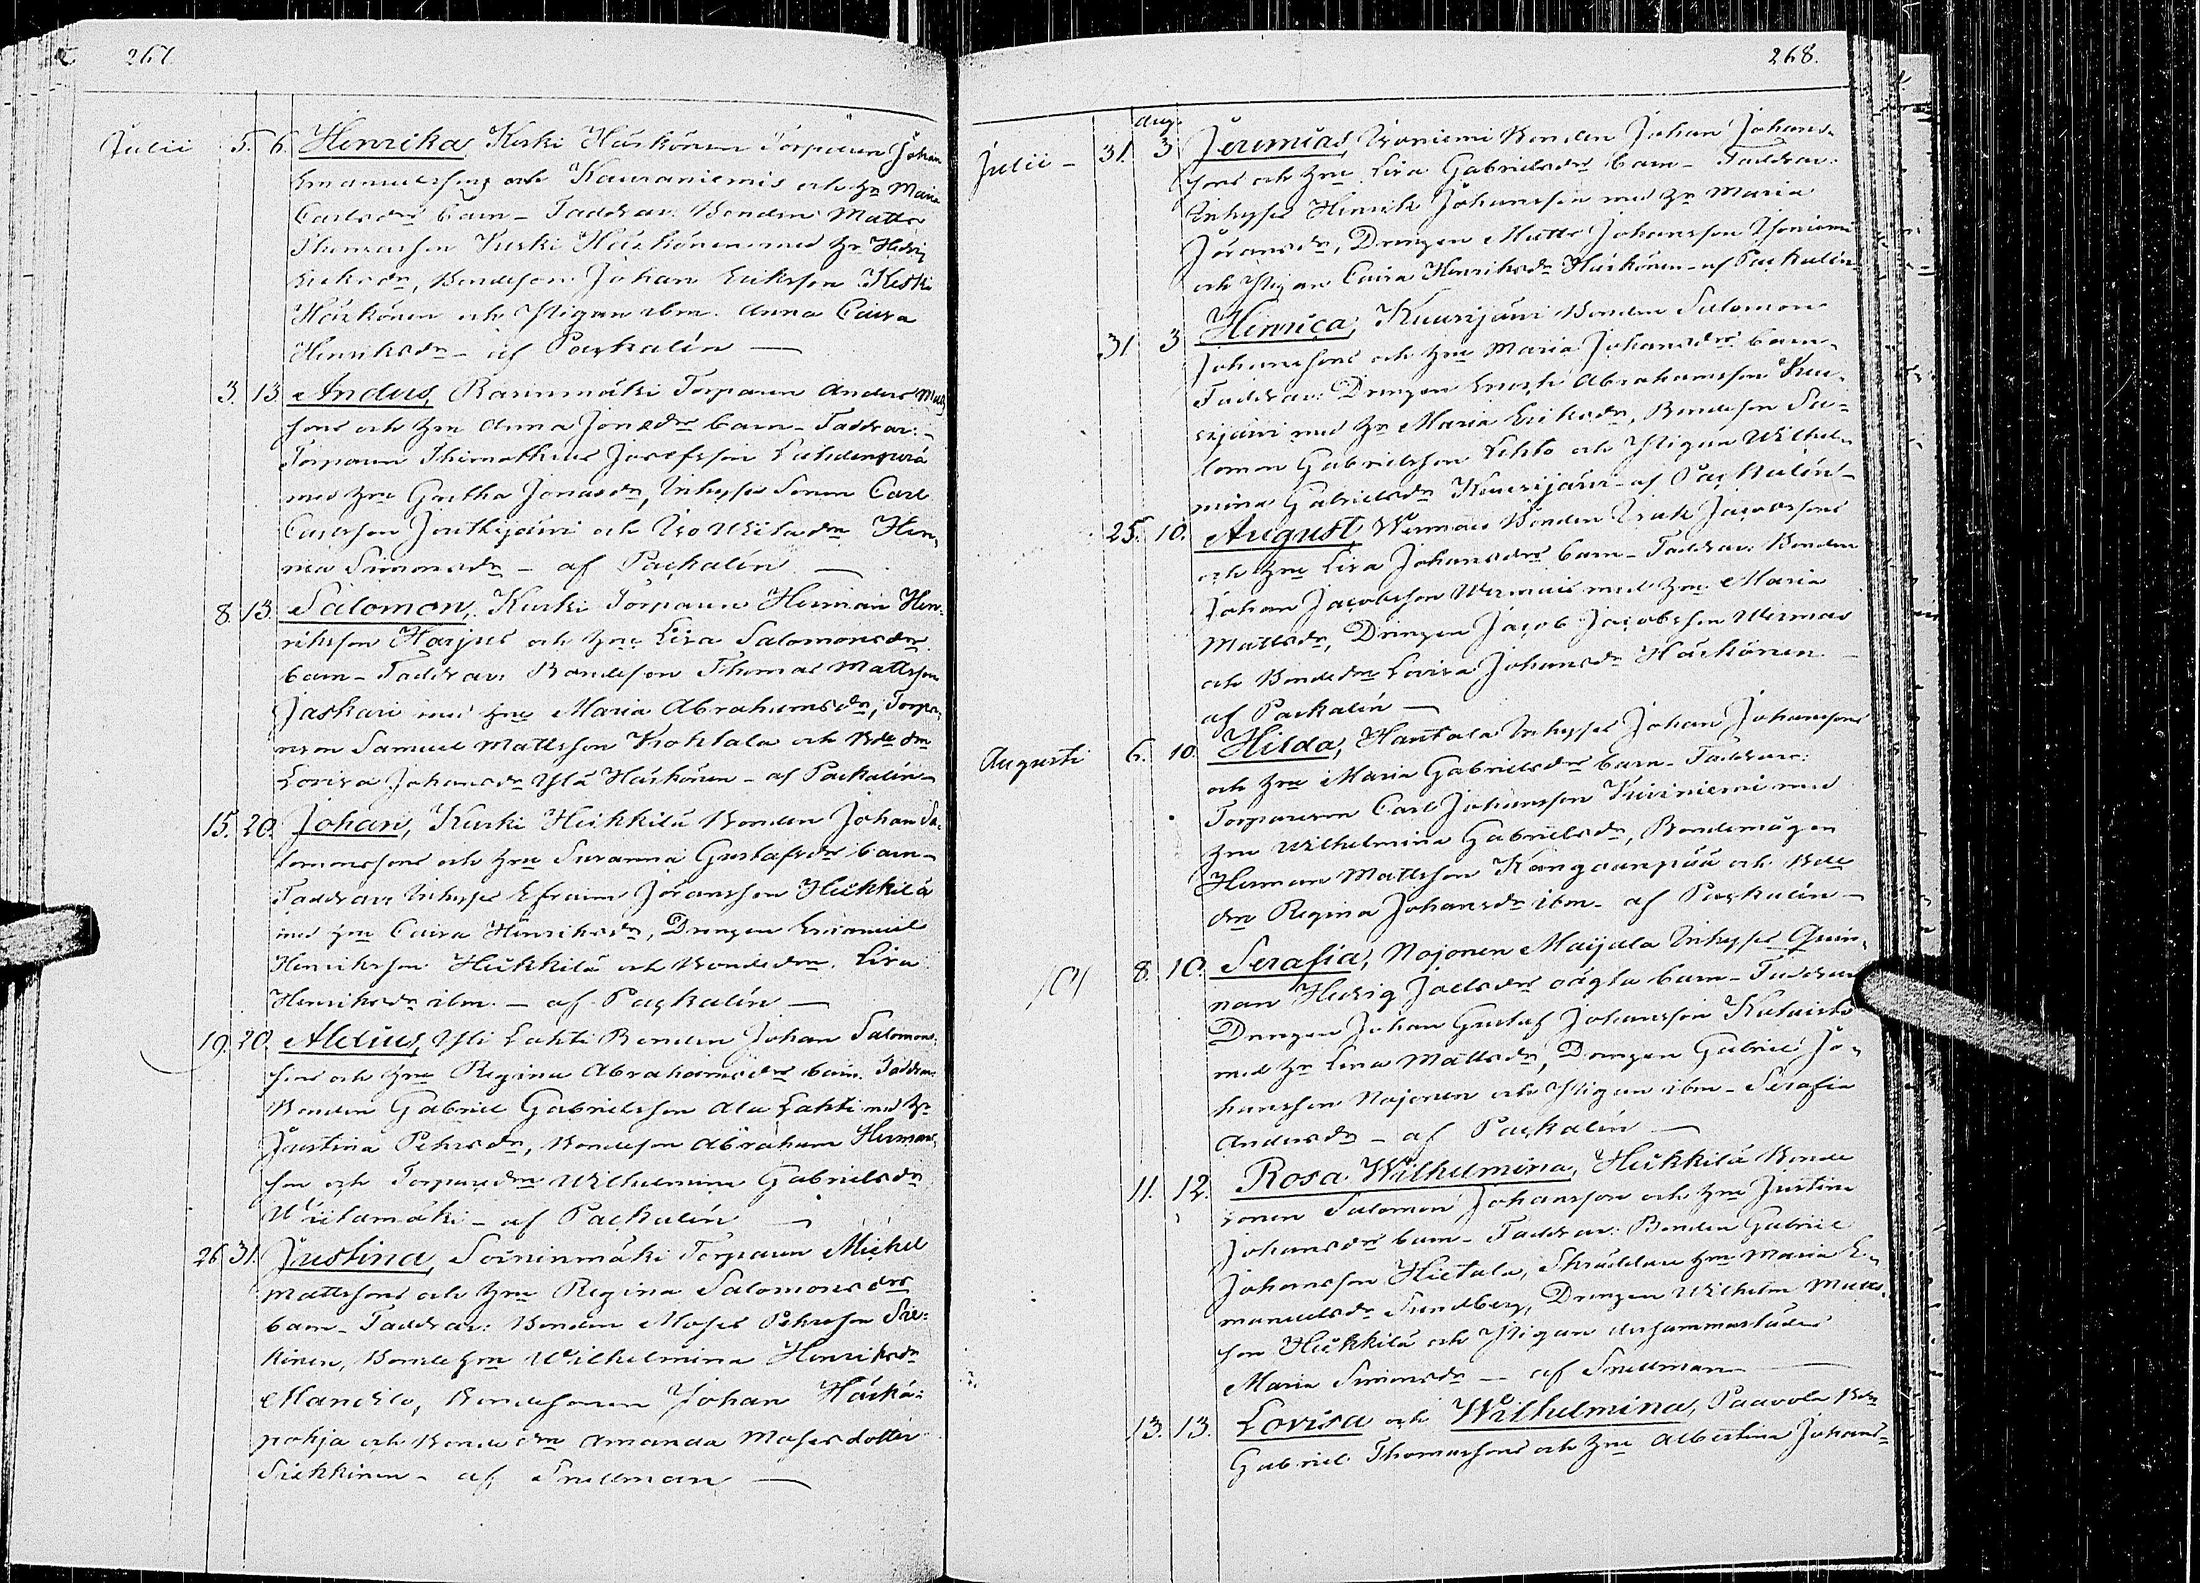 267.
Julii 5. 6. Henrika, Keski Häskönen Torparen Johan
Emanuelssons och Kauraniemis och h:u Maria
Carlsdrs barn - Faddrar. Bonden Matts
Thomasson Kurki Häiskönen med h:u Hedvig
Eriksdr, Bondeson Johan Eriksson Keski
Häiskönen och Pigan ibm. Anna Caisa
Henriksdr - af Paçkalén
3. 13. Andus, Raninmäki Torparen Anders Matts
sons och hu Anna Jonædrs barn - Faddrar. -
Torparen Thimotheus Josefsson Lahdenperä
med hu Gretha Jonasdr, Inhyses Sonen Carl
Carlsson Joutkijärvi och
Simonsdr - af Paçkalén
8. 13. Salomon, Kurki Torparen Herman Hen¬
riksson Harjus och hu Lisa Salomonsdrs
barn - Faddrar. Bondeson Thomas Mattsson
Jaskari med hu Maria Abrahamsdr, Torpa¬
reson Samuel Mattsson Krohlala och Bde dr
Lovisa Johansdr Yli Häiskönen - af Packalén
15. 20. Johan, Kurki Heikkilä Bonden Johan Sa¬
lomonssons och hu Susanna Gustafsdrs barn -
Faddrar Inhyses Efraim Jöransson Heikkilä
med hu Caisa Henriksdr, Drengen Emanuel
Henriksson Heikkilä och Bondedr. Lisa
Henriksdr ibm. - af Paçkalén -
19. 20. Aldius, Yli Lahti Bonden Johan Salomons¬
sons och hu Regina Abrahamsdrs barn. Faddrar
Bonden Gabriel Gabrielsson Ala Lahti med hu
Justina Pehrsdr, Bondeson Abraham Hermans¬
son och Torparedr Wilhelmina Gabrielsdr
Wiitamäki - af Paçkalén
26. 31. Justina, Soininmäki Torparen Michel
Mattssons och hu Regina Salomonsdrs
barn - Faddrar: Bonden Moses Pehrsson Sie¬
kinen, Bonde hu Wilhelmina Henriksdr
Mandelo, Bondesonen Johan Häihä¬
pohja och Bonde dr Amanda Mosisdotter
Siekkinen - af Snellman
268.
Aug.
Julii - 31. 3 Jeremias, Isoniemi Bonden Johan Johans¬
sons och hu Lisa Gabrielsdrs barn - Faddrar:
Inhyses Henrik Johansson med hu Maria
Jöransdr, Drengen Matts Johansson Isoniemi
och Pigan Caisa Henriksdr Häiskönen - af Paçkalén
31 3 Henrica, Kuurijärvi Bonden Salomon
Johanssons och hu Maria Johansdrs barn -
Faddrar: Drengen Enoch Abrahamsson Kuu¬
rijärvi med hu Maria Eriksdr, Bondeson Sa¬
lomon Gabrielsson Lehto och Pigan Wilhel¬
mina Gabrielsdr Kuurijärvi - af Paçkalén -
25. 10. August, Wirmais Bonden Isak Jacobssons
och hu Lisa Johansdrs barn - Faddrar: Bonden
Johan Jacobsson Wirmais med hu Maria
Mattsdr, Drengen Jacob Jacobsson Wirmas
och Bondedr Lovisa Johansdr Häiskönen
af Packalén
Augusti 6. 10. Hilda, Hantala Inhyses Johan Johanssons
och hu Maria Gabrielsdrs barn - Faddrar:
Torparen Carl Johansson Kiviniemi med
hu Wilhelmina Gabrielsdr, Bondemågen
Herman Mattsson Kangaanpää och Bde
dr Regina Johansdr ibm. af Paçkalén -
8. 10. Serafia, Nojonen Maijala Inhyses Quin¬
nan Hedvig Joelsdrs oägta barn - Faddrar
Drengen Johan Gustaf Johansson Kataisto
med hu Lena Mattsdr, Drengen Gabriel Jo¬
hansson Nojonen och Pigan ibm - Serafia
Andersdr - af Paçkalén
11. 12. Rosa Wilhelmina, Heikkilä Bonde
sonen Salomon Johansson och hu Justina
Johansdrs barn - Faddrar: Bonden Gabriel
Johansson Hietala, Skräddare hu Maria E¬
manuelsdr Sundberg, Drengen Wilhelm Matts¬
son Heikkilä och Pigan dersammastädes
Maria Simonsdr - af Snellman
13. 13. Lovisa och Wilhelmina, Paavola Bdn
Gabriel Thomassons och hu Albertina Johans¬